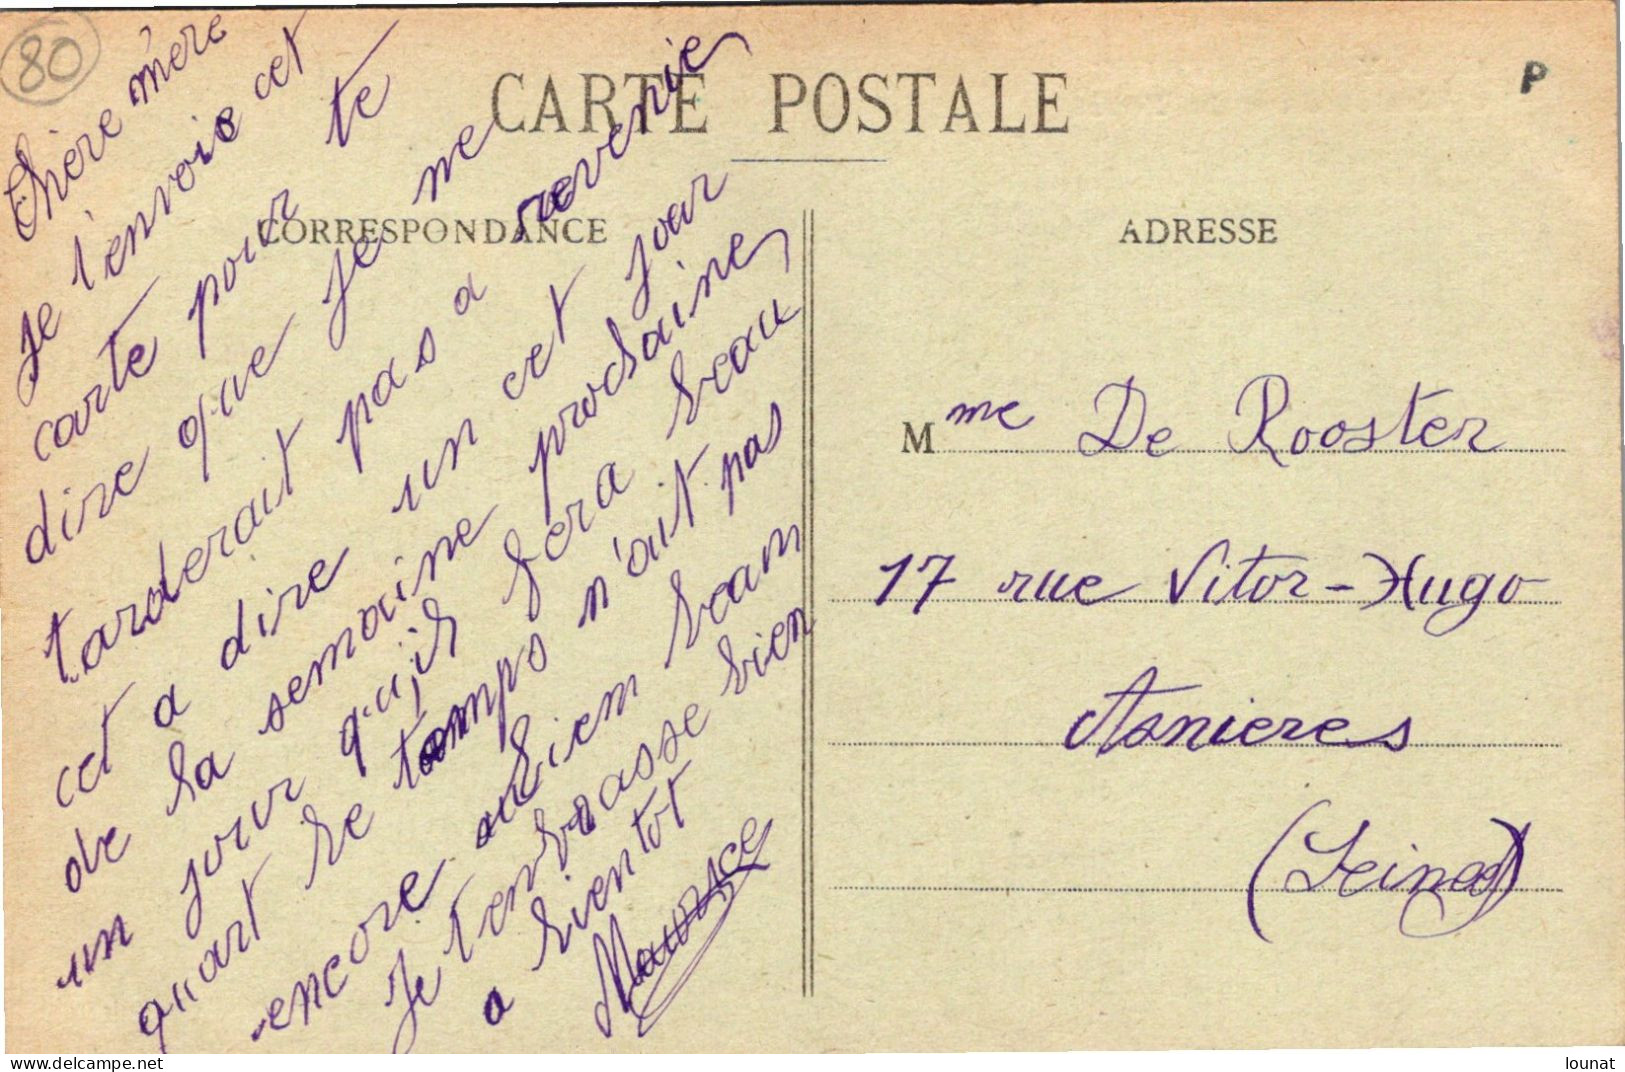 80
CARTE POSTALE
P
CORRESPONDANCE
ADRESSE
Chère mère
Je t'envoie cet
carte pour te
dire que je me
tarderait pas a revenir
cet a dire un cet jour
de la semaine prochaine,
un jour qu'il fera beau
quart le temps n'ait pas
encore bien beau
Je t'enbrasse bien
a bientot
Maurice
Mme De Rooster
17 rue Vitor-Hugo
Asnieres
(Seine)
lounat